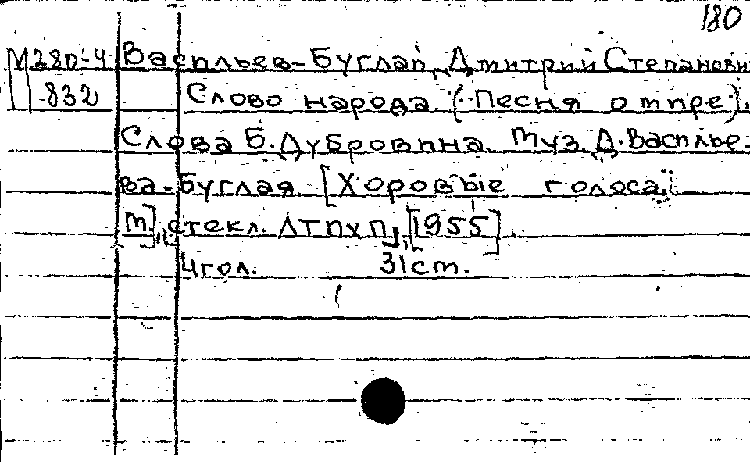 180
М280-4 Васильев-Буглай, Дмитрий Степанови
832 Слово народа (Песня о мире).
Слова Б. Дубровина. Муз. Д. Василье-
ва-Буглая [Хоровые голоса.
М], стекл. ЛТПХП, [1955].
4 гол. 31 cm.